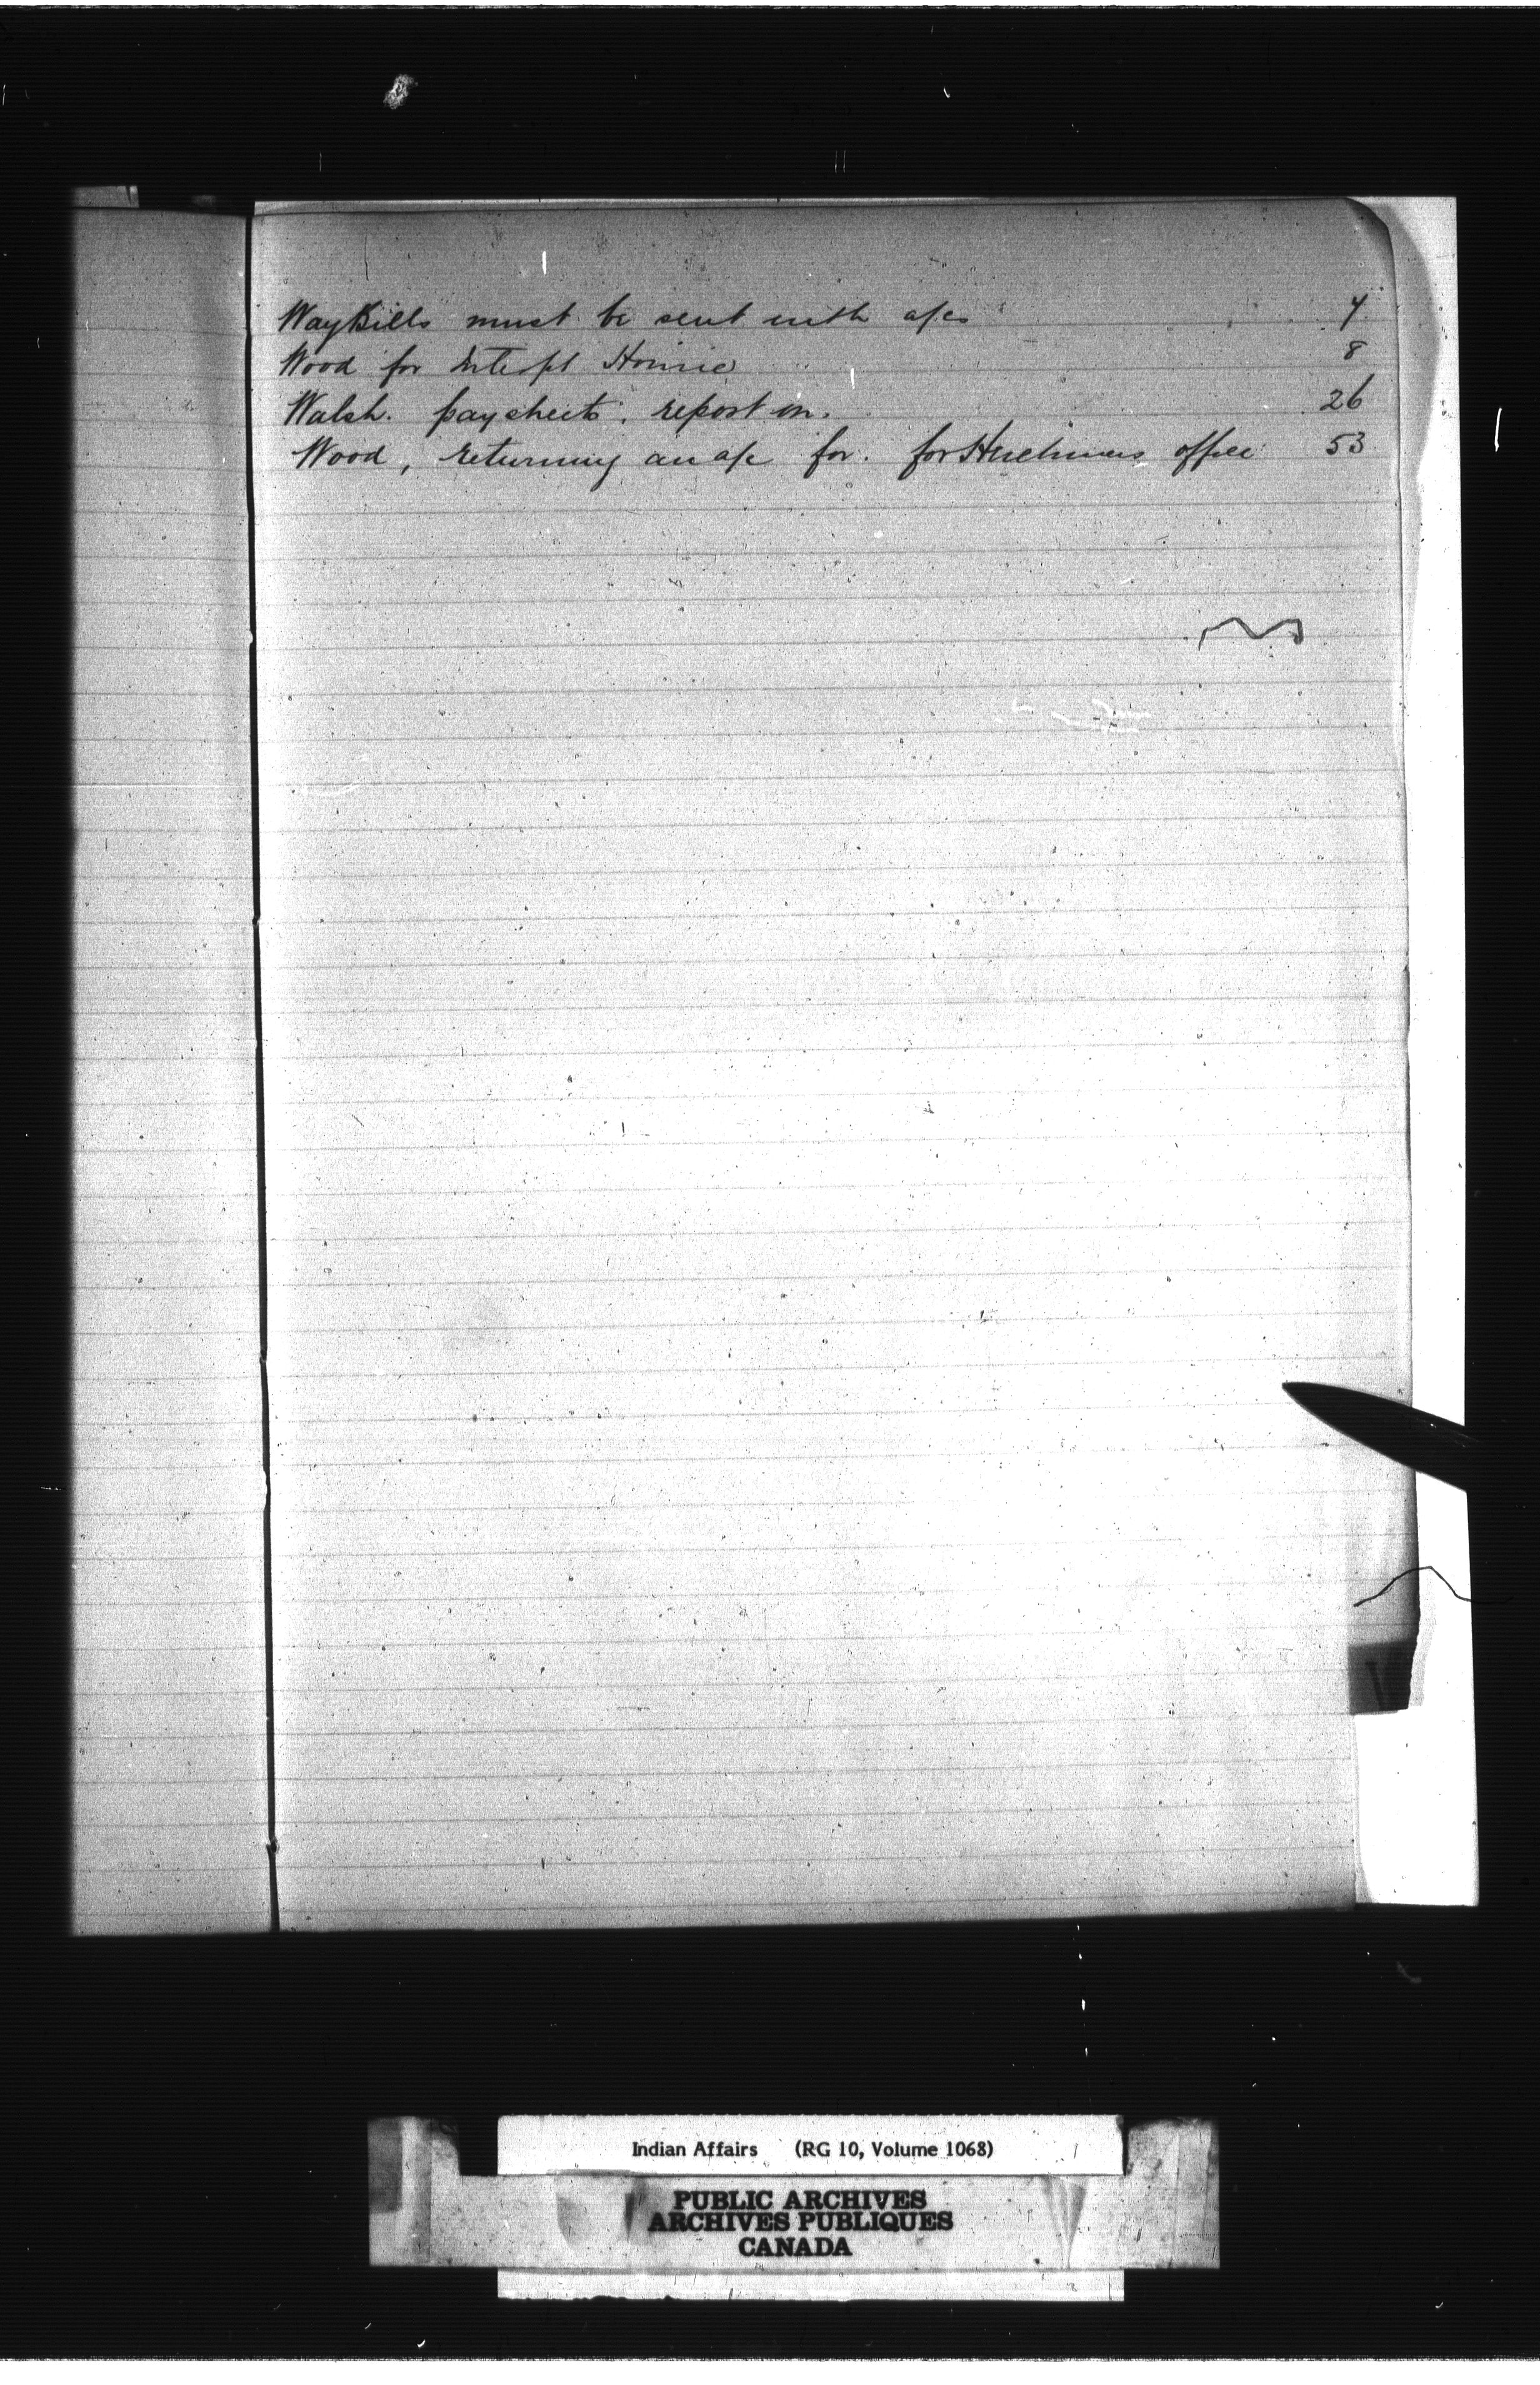 Way Bills must be sent with a/cs 7
Wood for House 8
Walsh. paysheets. report on. 26
Wood, returning an a/c for. for Herchmers office 53
Indian Affairs (RG 10, Volume 1068)
PUBLIC ARCHIVES
ARCHIVES PUBLIQUES
CANADA